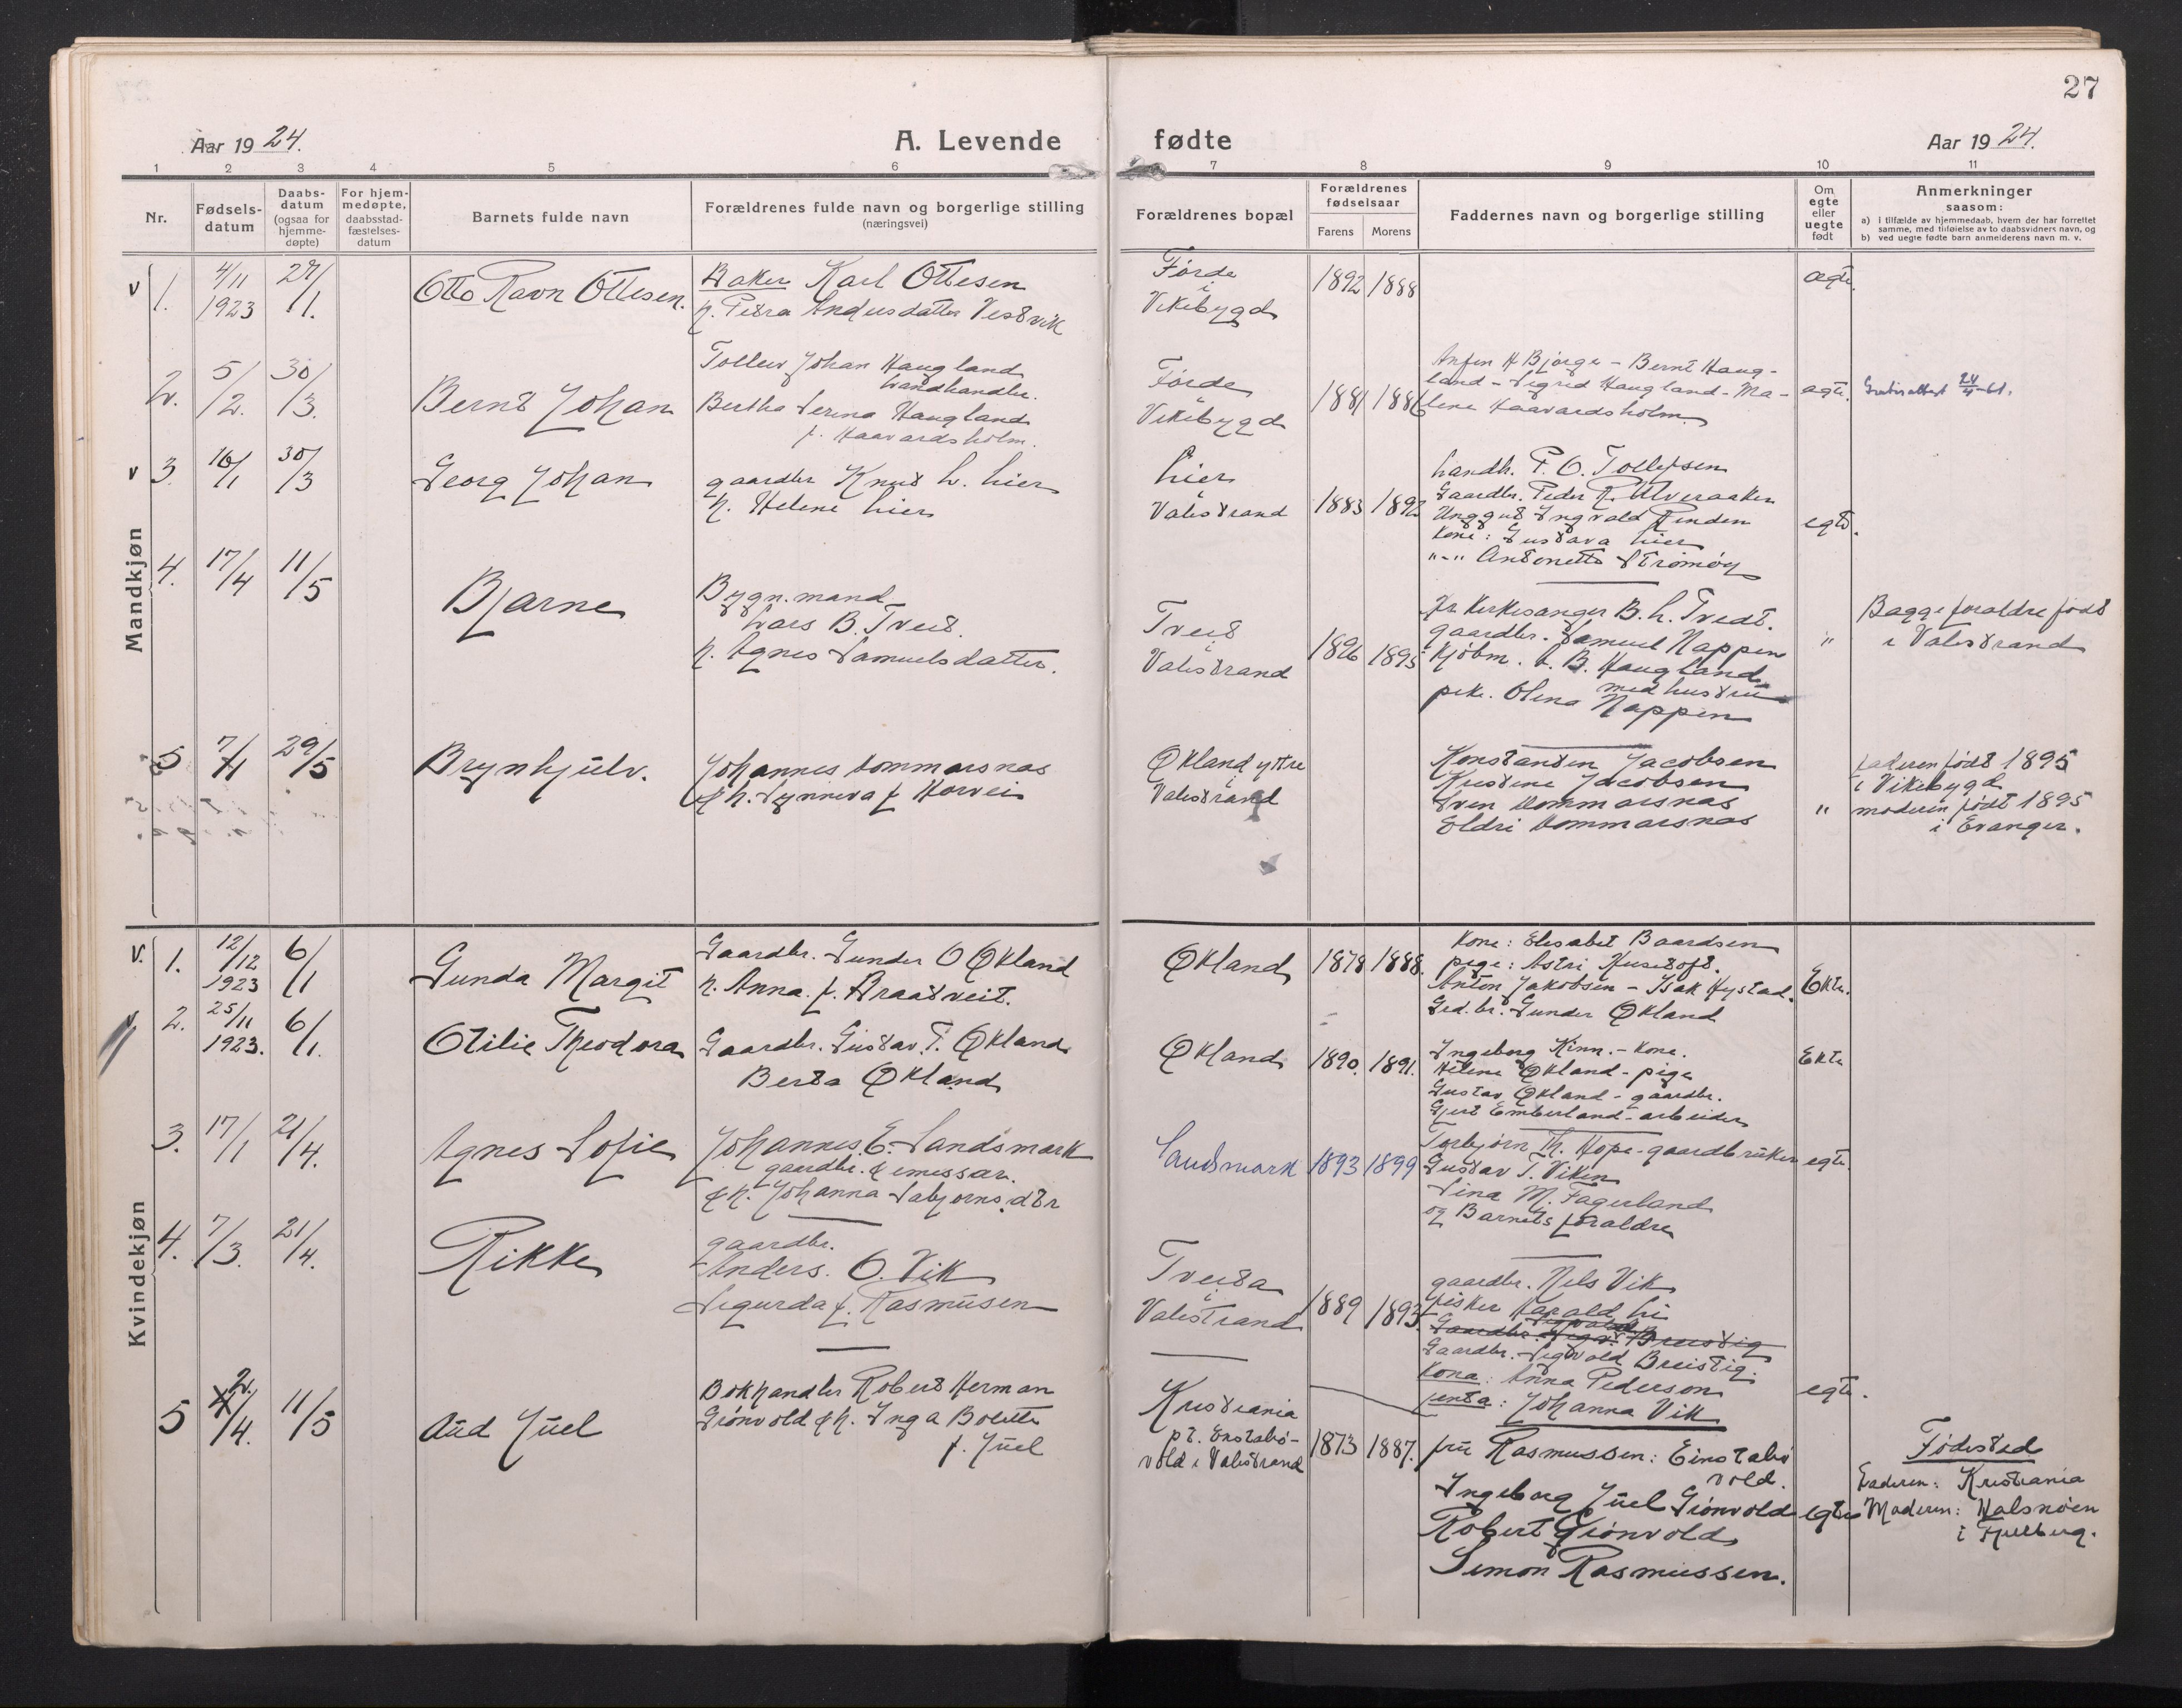 27
Aar 1924.
A. Levende fødte
Aar 1924.
1 2 3 4 5 6 7 8 9 10 11
Nr.
Fødsels-
datum
Daabs-
datum
(ogsaa for
hjemme-
døpte)
For hjem-
medøpte,
daabsstad-
fæstelses-
datum
Barnets fulde navn
Forældrenes fulde navn og borgerlige stilling
(næringsvei)
Forældrenes bopæl
Forældrenes
fødselsaar
Farens Morens
Faddernes navn og borgerlige stilling
Om
egte
eller
uegte
født
Anmerkninger
saasom:
a) i tilfælde av hjemmedaab, hvem der har forrettet
samme, med tilføielse av to daabsvidners navn, og
b) ved uegte fødte barn anmelderens navn m. v.
Mandkjøn
v 1.
4/11
1923
27/1.
Otto Ravn Ottesen.
Baker Karl Ottesen
h. Petra Andersdatter Vestvik
Førde
i
Vikebygd
1892 1888
ægte.
2.
5/2.
30/3.
Bernt Johan
Tollew Johan Haugland
Landhandler.
Bertha Serina Haugland
f. Haavardsholm.
Førde
i
Vikebygd
1881 1886
Anfin H Bjørge - Bernt Haug-
land - Sigrid Haugland - Ma-
lene Haavardsholm.
ægte.
24/4-61.
v 3.
16/1
30/3
Georg Johan
gaardbr Knut L. Lier
h. Helene Lier
Lier
i
Valestrand
1883 1892
Landh. P. O. Tollefsen
Gaardbr. Peder R. Ulveraaker
Unggut Yngvald Rinden
Kone: Gustava Lier
"-" Antonette Strømøy
egte.
4.
17/4
11/5
Bjarne
Bygn.mand
Lars B. Tveit.
h. Agnes Samuelsdatter.
Tveit
i
Valestrand
1896 1895
Hr Kirkesanger B. L. Tvedt.
gaardbr. Samuel Nappen
Kjøbm. A. B. Haugland
med hustru
pike. Olena Nappen
"
Begge foraldre født
i Valestrand
5
7/1
29/5
Brynhjulv.
Johannes Lommarsnas
& h. Synneva f Horvei
Økland yttre
i
Valestrand
Konstanten Jacobsen
Kristene Jacobsen
Sven Lommarsnas
Eldri Lommarsnas
"
faderen født 1895
i Vikebygd
moderen født 1895
i Evanger.
Kvindekjøn
v. 1.
12/12
1923
6/1
Gunda Margit
Gaardbr. Gunder O Økland
h. Anna. f. Braatveit.
Økland
1878 1888.
Kone: Elisabet Baardsen
pege: Astri Husetoft.
Anton Jakobsen - Isak Hystad.
Grd. br. Gunder Økland
Ekte.
v 2.
25/11
1923.
6/1.
Otilie Theodora
Gaardbr. Gustav T. Økland
Berta Økland
Økland
1890. 1891.
Ingeborg Kinn. - Kone.
Helene Økland - pige
Gustav Økland - gaardbr.
Gjert Emberland - arbeider
Ekte
3.
17/1
21/4.
Agnes Sofie
Johannes E. Sandsmark
gaardbr. & emessær.
& h. Johanna Sabjørns.dtr
Sandsmark
1893 1899
Torbjørn Th. Hope - gaardbruker
Gustav T. Viken
Sina M. Fagerland
og Barnets foraldre
egte.
4.
7/3.
21/4.
Rikke
gaardbr.
Anders. O. Vik
Sigurda f. Rasmusen
Tveita
i
Valestrand
1889 1893.
gaardbr. Nils Vik
fisker Harald Li
Gaardbr. Sigvald Breistig.
Kona: Anna Pederson
jenta: Johanna Vik
egte.
5
2/4.
11/5
Aud Juel
Bokhandler Robert Herman
Grønvold & h. Inga Bolette
f. Juel
Kristiania
pt. Enstabø-
vold i Valestrand
1873 1887.
fru Rasmussen: Einstabø
vold.
Ingeborg Juel Grønvold
Robert Grønvold
Simon Rasmussen.
egte
Fødested
Faderen: Kristiania
Moderen: Halsnøen
i Fjelberg.